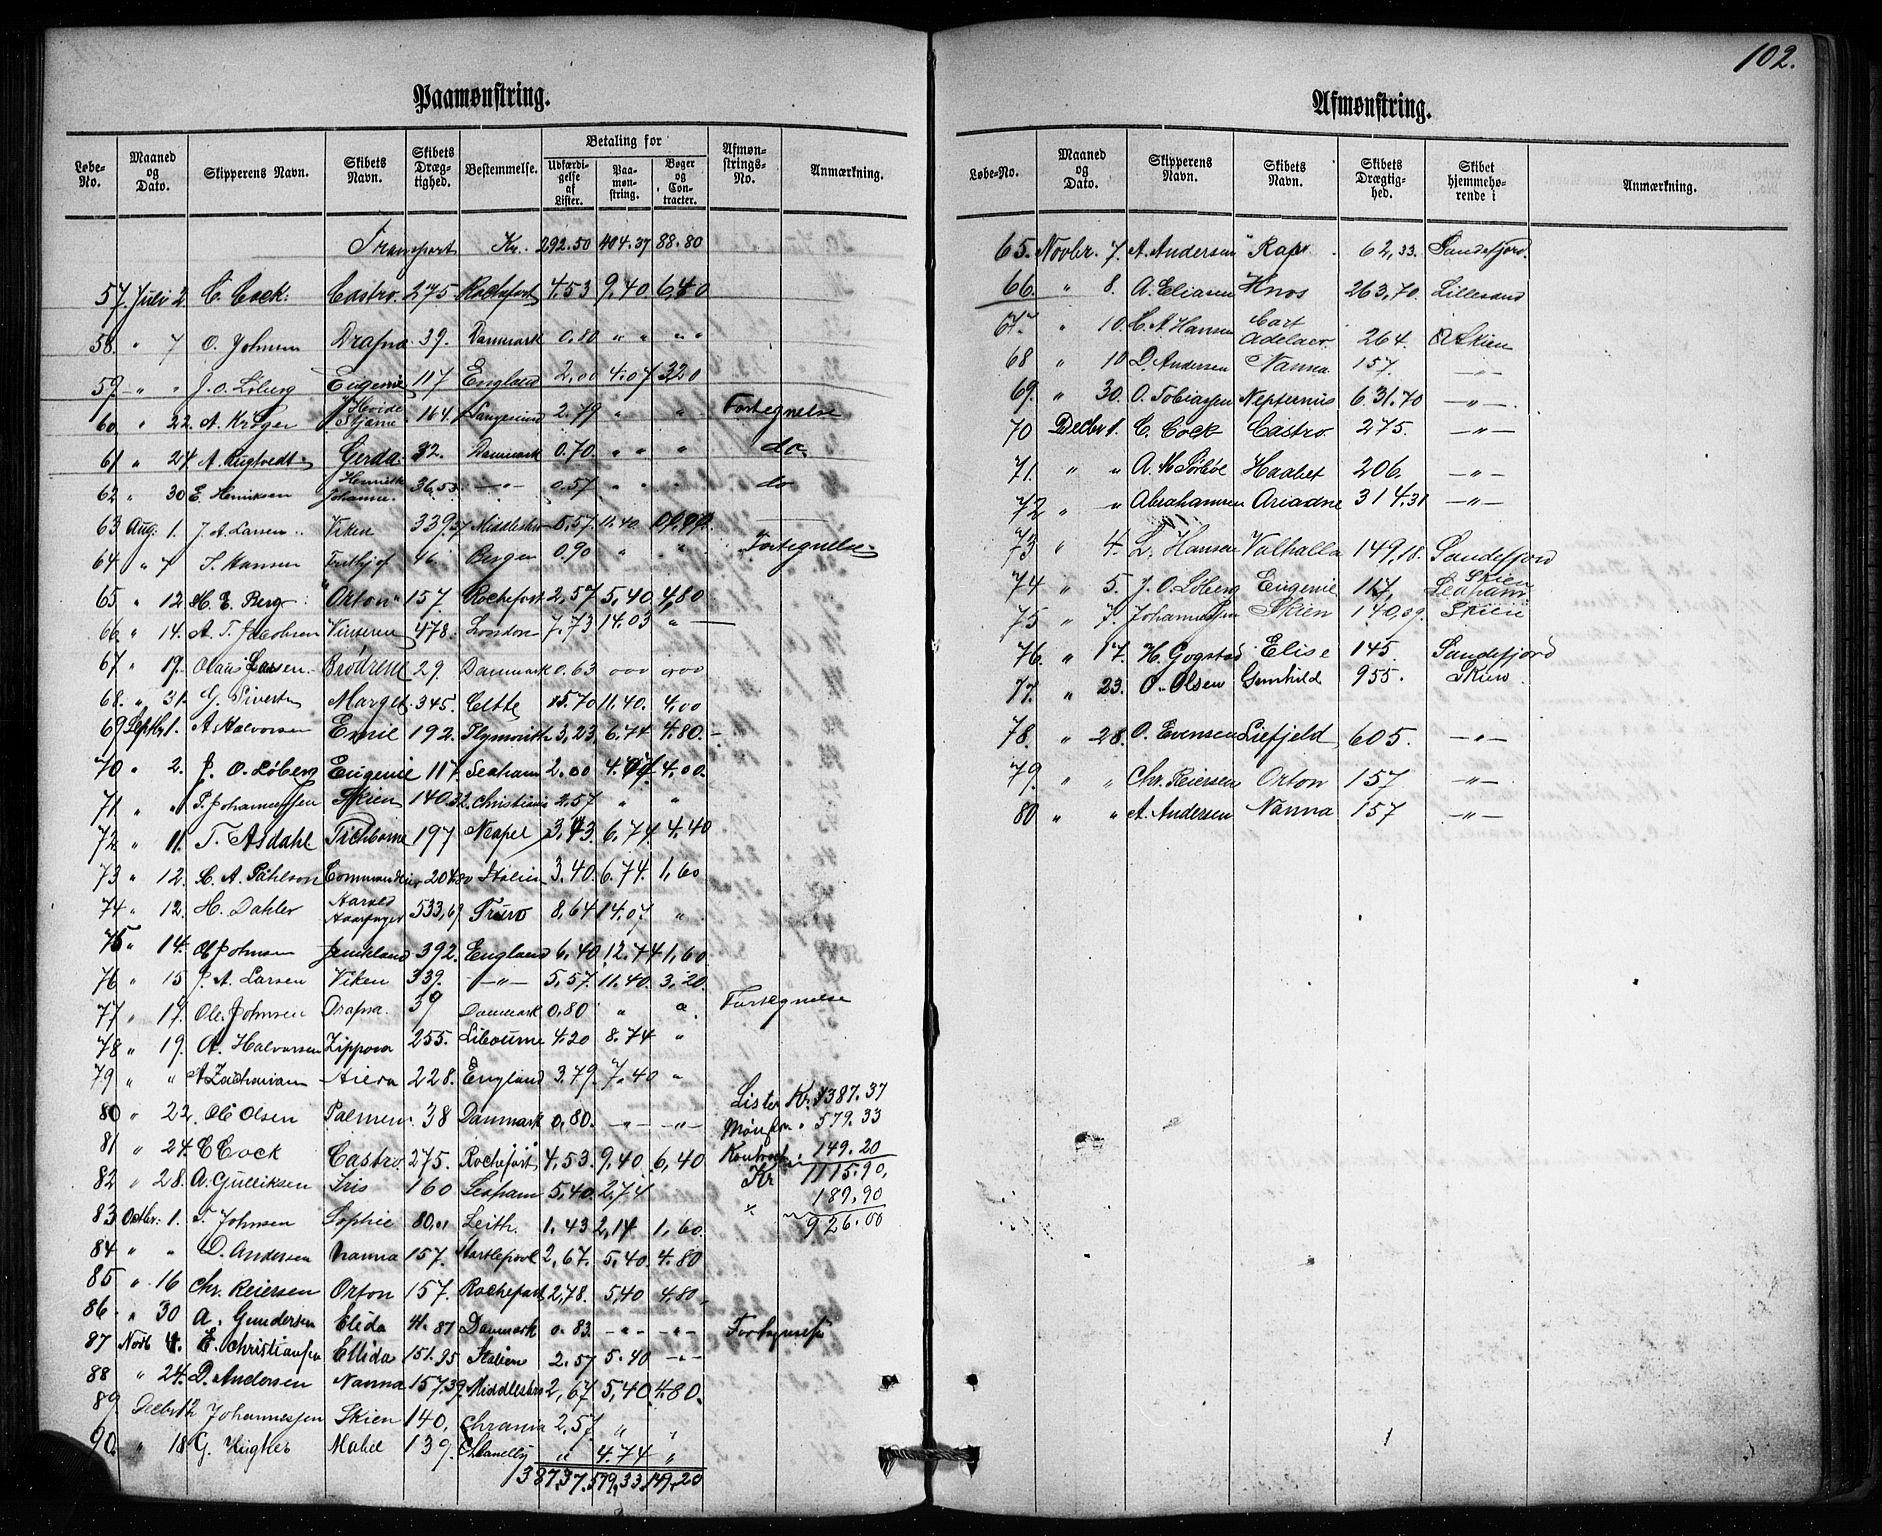 102.
Paamønstring.
Løbe-No. Maaned og Dato. Skipperens Navn. Skibets Navn. Skibets Drægtighed. Bestemmelse. Betaling for Udfærdigelse af Lister. Paamønstring. Bøger og Contracter. Afmønstrings-No. Anmærkning.
Transport Kr. 292.50 404.37 88.80
57. Juli 2 C. Cock. Castro. 275 Rochefort 4,53 9,40 6,40
58. " 7 O. Johnsen Drafna 39. Danmark 0.80 " " " "
59. " " J. O. Løberg Eugenie 117 England 2,00 4.07 3,20
60. " 22. A. Krüger Hvide Stjerne 164 Langesund 2.79 " " Fortegnelse
61 " 24 A. Rugtvedt Gerda 32. Danmark 0.70. " " " do
62 " 30 E. Henriksen Henriette Johanne. 36,53 —"— 0,57 " " " do
63 Aug. 1. J. A. Larsen Viken 339.57 Middlesbro 5,57. 11.40.
64 " 7 T. Hansen Frithjof 46 Bergen 0.90 " " Fortegnelse
65 " 12 H. E. Berg "Orton" 157 Rochefort 2,57 5,40 4,80
66 " 14. A. T. Jacobsen Vinteren 478. London 7.73 14.03 " —
67 " 19. Olaus Larsen. Brødrene 29. Danmark 0.63 ooo ooo
68. " 31. G. Sivertsen Marget. 345. Cette 15.70 11.40. 4,00
69 Septbr 1. A. Halvorsen Emil 192. Plymouth 3,23, 6,74 4.80.
70 " 2. J. O. Løberg Eugenie 117. Seaham 2.00 4.07 4,00.
71 " " P. Johannessen Skien 140.32 Christiania 2,57 " "
72 " 11. T. Asdahl Tichborne 197 Neapel 3,43 6,74 4,40
73 " 12. C. A. Påhlson Commandeur 204.80 Italien 3.40. 6.74. 1,60
74 " 12. H. Dahler Harald Haarfager 533,69 Truro 8,64 14.07 "
75 " 14. Ol Johnsen Jenikland 392. England 6,40. 12.74 1,60
76 " 15 J. A. Larsen Viken 339. —"— 5,57. 11.40. 3,20
77 " 17. Ole Johnsen Drafna. 39 Danmark 0,80 " " Fortegnelse
78 " 19. A. Halvorsen Zippora 255. Libourne 4.20 8.74 "
79 " " A Zachariasen 228. England 3.79. 7.40 "
80 " 22. Ole Olsen Palmen 38 Danmark 0,80. —"— —"—
Lister Kr. 387.37
Mønstr. " 579.33
81 " 24. C Cock Castro. 275. Rochefort 4,53. 9,40 6,40
Kontract " 149.20
Kr 1115.90.
82 " 28. A. Gulliksen Iris 160 Seaham 5,40. 2.74
189.90
926.00
83 Octbr. 1. T. Johnsen Sophie 80,01 Leith. 1,43 2,14 1,60.
84 " " D. Andersen Nanna 157. Hartlepool 2,67. 5,40. 4.80
85 " 16 Chr. Reiersen Orton 157. Rochefort 2,78. 5,40 4.80
86. " 30 A. Gundersen Elida 41.87 Danmark 0.83. —"— —"— Fortegnelse
87 Novb 4. E. Christiansen Ellida 151.95 Italien 2.57 5.40 —"—
88 " 24. D. Andersen Nanna 157.39 Middlesbro 2,67 5,40. 4.80.
89. Decbr 12 Johannessen Skien 140, Chrania 2,57. " "
90. " 18. G. Mabel 139. Llanelly " 4.74 "
387.37. 579,33 149,20
Afmønstring.
Løbe-No. Maaned og Dato. Skipperens Navn. Skibets Navn. Skibets Drægtighed. Skibet hjemmehørende i Anmærkning.
65. Novbr. 7. A. Andersen Rap. 62,33. Sandefjord.
66. " 8. A. Eliasen Knos 263,70. Lillesand
67. " 10. C. A. Hansen Cort Adelaer. 264. Skien
68 " 10 D. Andersen Nanna 157. —"—
69. " 30. O. Tobiassen Neptunus 631.70 —"—
70 Decbr 1. C. Cock Castro. 275. —"—
71. " " A. M Sørbøe Haabet 206. —"—
72 " " Abrahamsen Ariadne 314.31 —"—
73 " 4. L. Hansen Valhalla 149,18. Sandefjord
74 " 5. J. O. Løberg Eugenie 117, Skien
75 " 7. Johannessen Skien 140,09. Skien
76. " 17. H. Gogstad Elise 145. Sandefjord
77. " 23. O. Olsen Gunhild 955. Skien.
78. " 28. O. Evensen Liefjeld 605. —"—
79. " " Chr. Reiersen Orton 157 —"—
80 " " A. Andersen Nanna 157 —"—